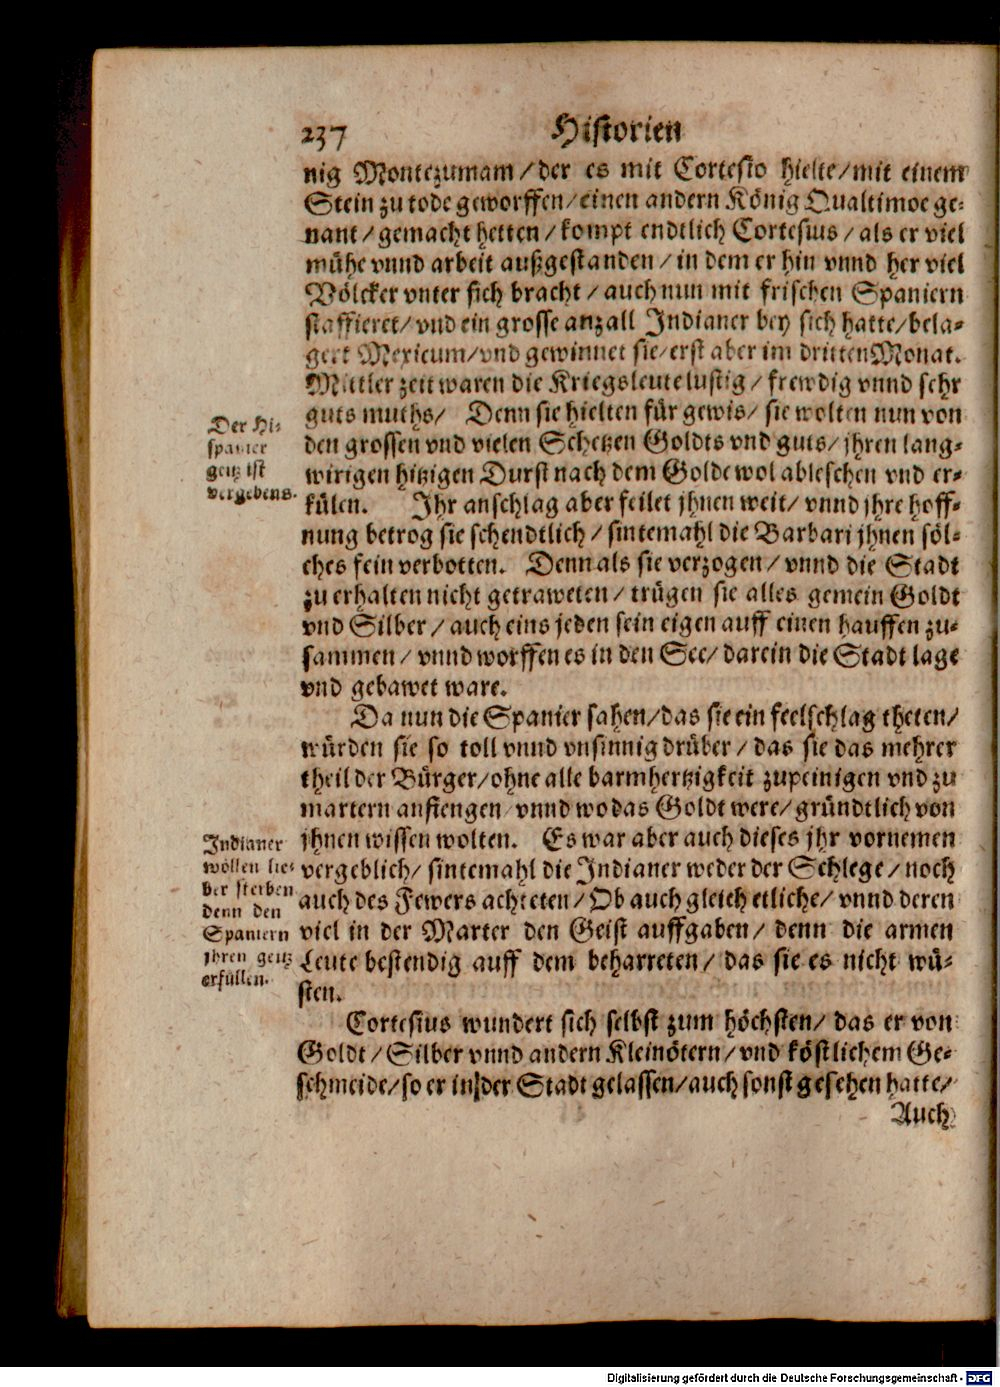 237 Historien
nig Montezumam / der es mit Cortesio hielte / mit einem
Stein zu tode geworffen / einen andern König Qualtimoc ge-
nant / gemacht hetten / kompt endtlich Cortesius / als er viel
mühe vnnd arbeit außgestanden / in dem er hin vnnd her viel
Völcker vnter sich bracht / auch nun mit frischen Spaniern
staffieret / vnd ein grosse anzall Indianer bey sich hatte / bela-
gert Mexicum / vnd gewinnet sie / erst aber im dritten Monat.
Mittler zeit waren die Kriegsleute lustig / frewdig vnnd sehr
guts muths / Denn sie hielten für gewis / sie wolten nun von
den grossen vnd vielen Schetzen Goldts vnd guts / jhren lang-
wirigen hitzigen Durst nach dem Golde wol ableschen vnd er-
külen. Ihr anschlag aber feilet jhnen weit / vnnd jhre hoff-
nung betrog sie schendtlich / sintemahl die Barbari jhnen söl-
ches fein verbotten. Denn als sie verzogen / vnnd die Stadt
zu erhalten nicht getraweten / trügen sie alles gemein Goldt
vnd Silber / auch eins jeden sein eigen auff einen hauffen zu-
sammen / vnnd worffen es in den See / darein die Stadt lage
vnd gebawet ware.
Der Hi-
spanier
geitz ist
vergebens.
Da nun die Spanier sahen / das sie ein feelschlag theten /
würden sie so toll vnnd vnsinnig drüber / das sie das mehrer
theil der Bürger / ohne alle barmhertzigkeit zupeinigen vnd zu
martern anfiengen / vnnd wo das Goldt were / gründtlich von
jhnen wissen wolten. Es war aber auch dieses jhr vornemen
vergeblich / sintemahl die Indianer weder der Schlege / noch
auch des Fewers achteten / Ob auch gleich etliche / vnnd deren
viel in der Marter den Geist auffgaben / denn die armen
Leute bestendig auff dem beharreten / das sie es nicht wü-
sten.
Indianer
wöllen lie-
ber sterben
denn den
Spaniern
jhren geitz
erfüllen.
Cortesius wundert sich selbst zum höchsten / das er von
Goldt / Silber vnnd andern Kleinötern / vnd köstlichem Ge-
schmeide / so er in der Stadt gelassen / auch sonst gesehen hatte /
Auch
Digitalisierung gefördert durch die Deutsche Forschungsgemeinschaft - DFG